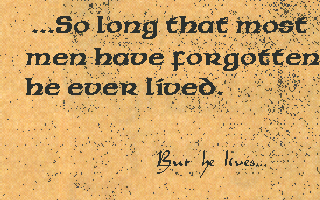 ...So long that most
men have forgotten
he ever lived.
But he lives...